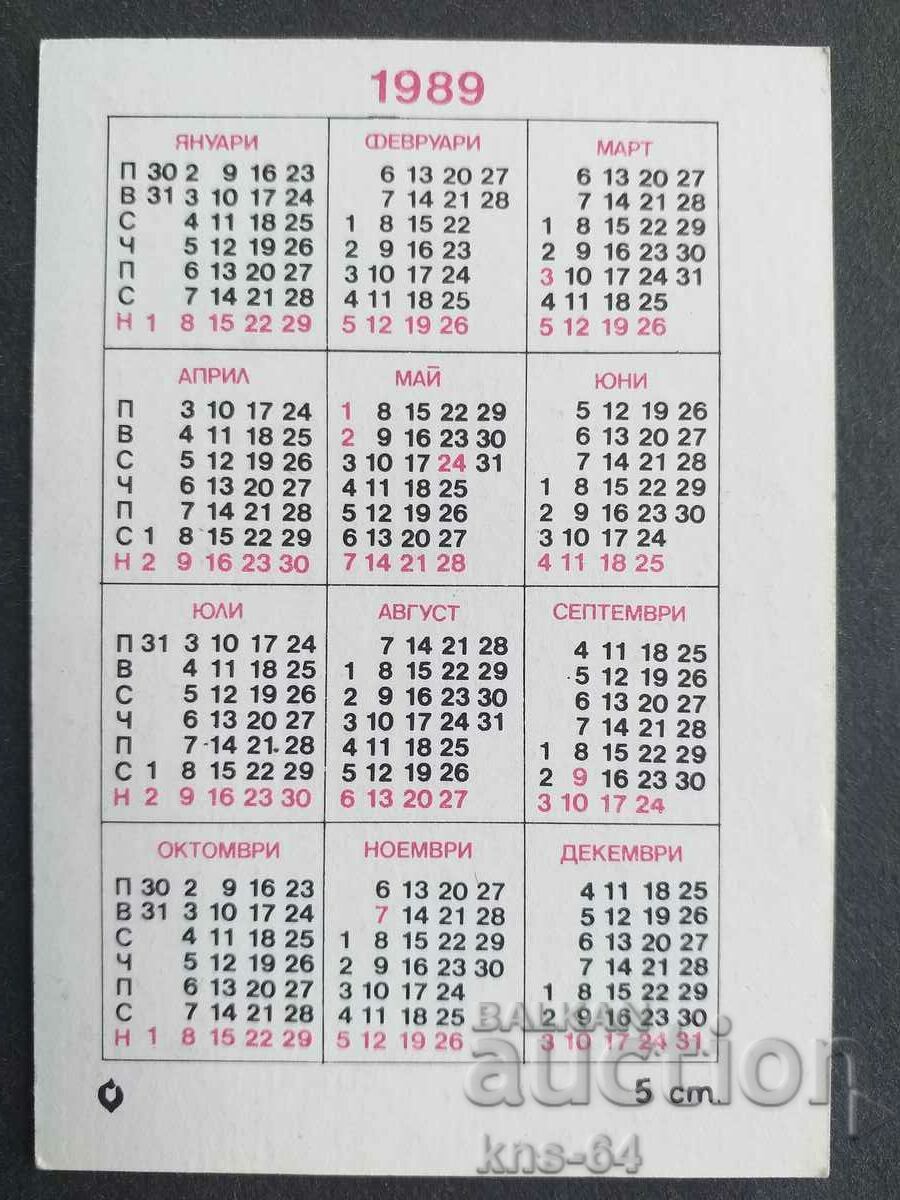 1989
ЯНУАРИ ФЕВРУАРИ МАРТ
П 30 2 9 16 23 6 13 20 27 6 13 20 27
В 31 3 10 17 24 7 14 21 28 7 14 21 28
С 4 11 18 25 1 8 15 22 1 8 15 22 29
Ч 5 12 19 26 2 9 16 23 2 9 16 23 30
П 6 13 20 27 3 10 17 24 3 10 17 24 31
С 7 14 21 28 4 11 18 25 4 11 18 25
Н 1 8 15 22 29 5 12 19 26 5 12 19 26
АПРИЛ МАЙ ЮНИ
П 3 10 17 24 1 8 15 22 29 5 12 19 26
В 4 11 18 25 2 9 16 23 30 6 13 20 27
С 5 12 19 26 3 10 17 24 31 7 14 21 28
Ч 6 13 20 27 4 11 18 25 1 8 15 22 29
П 7 14 21 28 5 12 19 26 2 9 16 23 30
С 1 8 15 22 29 6 13 20 27 3 10 17 24
Н 2 9 16 23 30 7 14 21 28 4 11 18 25
ЮЛИ АВГУСТ СЕПТЕМВРИ
П 31 3 10 17 24 7 14 21 28 4 11 18 25
В 4 11 18 25 1 8 15 22 29 5 12 19 26
С 5 12 19 26 2 9 16 23 30 6 13 20 27
Ч 6 13 20 27 3 10 17 24 31 7 14 21 28
П 7 14 21 28 4 11 18 25 1 8 15 22 29
С 1 8 15 22 29 5 12 19 26 2 9 16 23 30
Н 2 9 16 23 30 6 13 20 27 3 10 17 24
ОКТОМВРИ НОЕМВРИ ДЕКЕМВРИ
П 30 2 9 16 23 6 13 20 27 4 11 18 25
В 31 3 10 17 24 7 14 21 28 5 12 19 26
С 4 11 18 25 1 8 15 22 29 6 13 20 27
Ч 5 12 19 26 2 9 16 23 30 7 14 21 28
П 6 13 20 27 3 10 17 24 1 8 15 22 29
С 7 14 21 28 4 11 18 25 2 9 16 23 30
Н 1 8 15 22 29 5 12 19 26 3 10 17 24 31
BALKAN
auction
5 ст.
kns-64